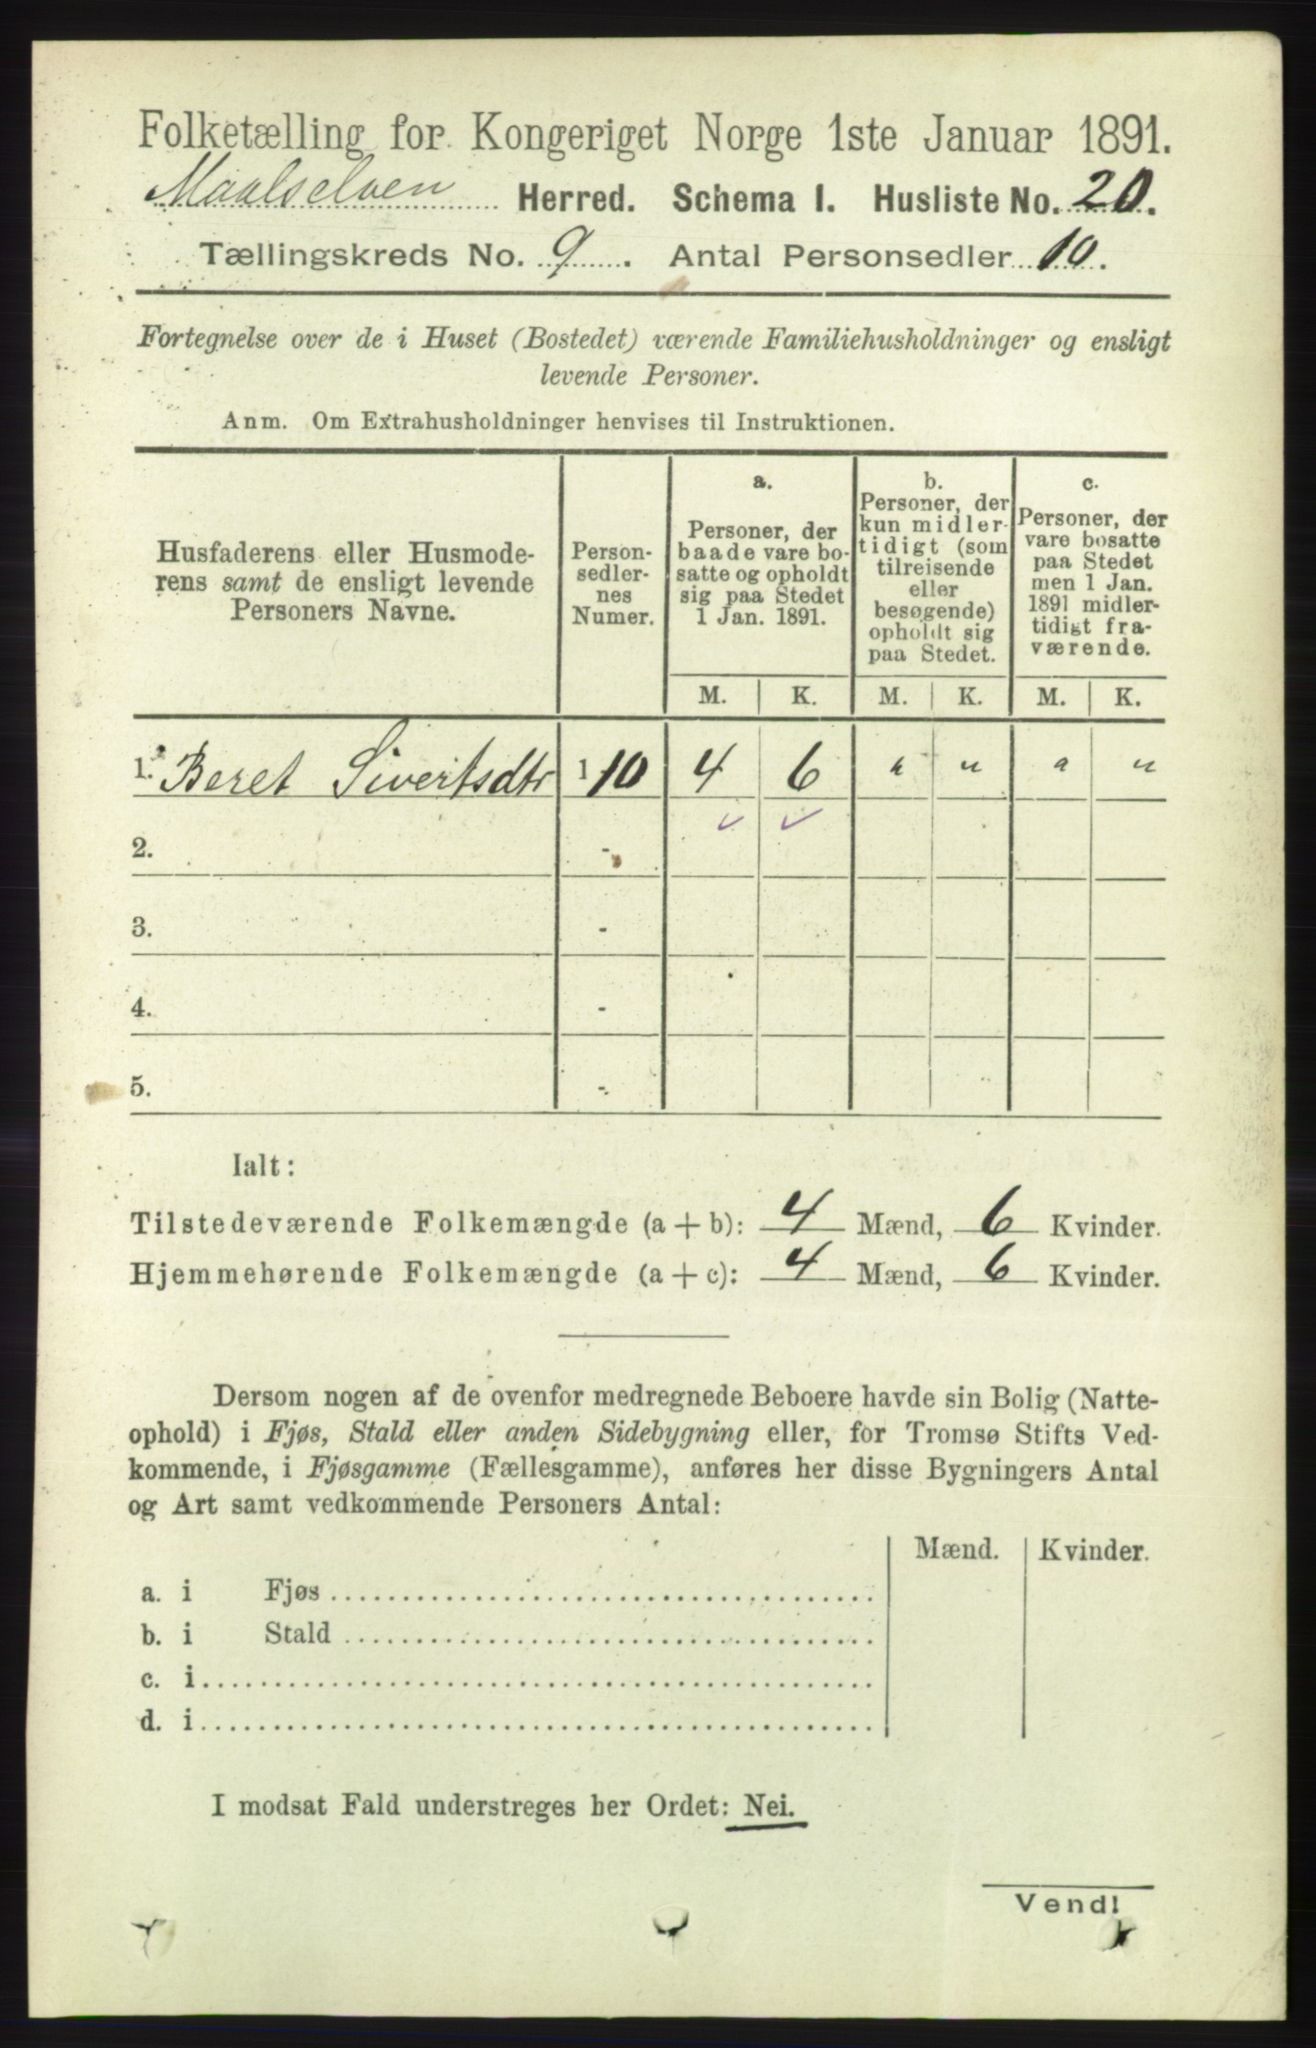 Folketælling for Kongeriget Norge 1ste Januar 1891.
Maalselven Herred. Schema I. Husliste No. 20.
Tællingskreds No. 9. Antal Personsedler 10.
Fortegnelse over de i Huset (Bostedet) værende Familiehusholdninger og ensligt
levende Personer.
Anm. Om Extrahusholdninger henvises til Instruktionen.
Husfaderens eller Husmode-
rens samt de ensligt levende
Personers Navne.
Person-
sedler-
nes
Numer.
a.
Personer, der
baade vare bo-
satte og opholdt
sig paa Stedet
1 Jan. 1891.
b.
Personer, der
kun midler-
tidigt (som
tilreisende
eller
besøgende)
opholdt sig
paa Stedet.
c.
Personer, der
vare bosatte
paa Stedet
men 1 Jan.
1891 midler-
tidigt fra-
værende.
M. K. M. K. M. K.
1. Beret Sivertsdtr 1-10 4 6 " " " "
2. -
3. -
4. -
5. -
Ialt:
Tilstedeværende Folkemængde (a + b): 4 Mænd, 6 Kvinder.
Hjemmehørende Folkemængde (a + c): 4 Mænd, 6 Kvinder.
Dersom nogen af de ovenfor medregnede Beboere havde sin Bolig (Natte-
ophold) i Fjøs, Stald eller anden Sidebygning eller, for Tromsø Stifts Ved-
kommende, i Fjøsgamme (Fællesgamme), anføres her disse Bygningers Antal
og Art samt vedkommende Personers Antal:
Mænd. Kvinder.
a. i Fjøs
b. i Stald
c. i
d. i
I modsat Fald understreges her Ordet: Nei.
Vend!